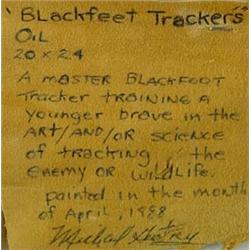 "Blackfeet Trackers"
OIL
20 x 24
A MASTER BLACKFOOT
Tracker TRAINING A
younger brave in the
ART/AND/OR SCIENCE
of TRACKING the
ENEMY OR WILDLIFE.
painted in the month
of April, 1988
Michael